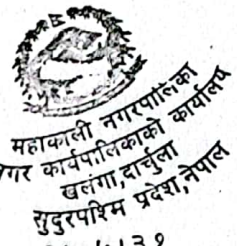 महाकाली नगरपालिका
नगर कार्यपालिकाको कार्यालय
खलंगा,दार्चुला
सुदुरपश्चिम प्रदेश,नेपाल